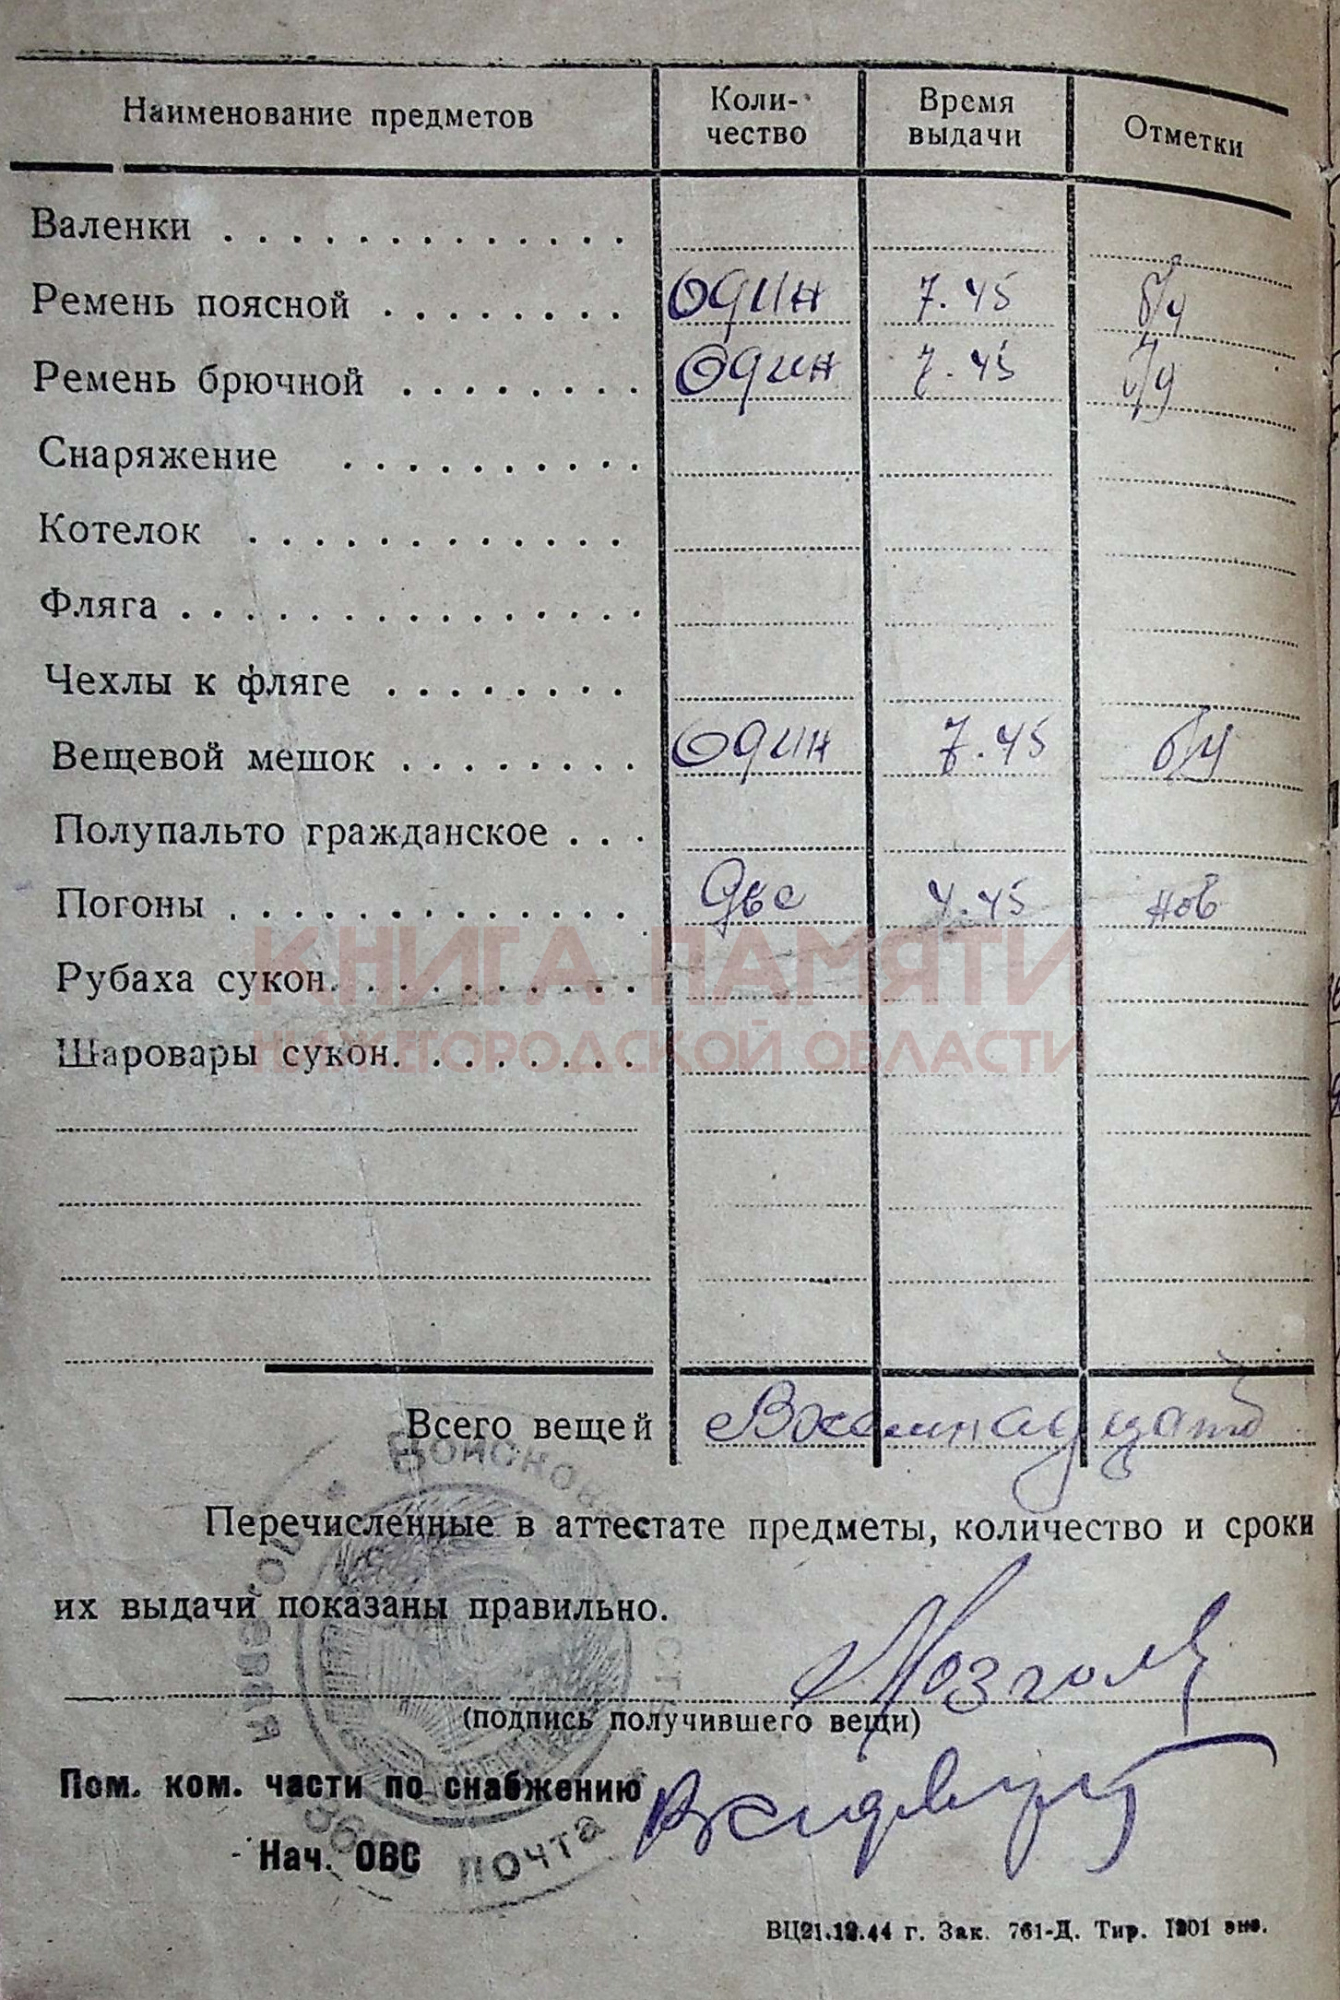 Наименование предметов Коли-чество Время выдачи Отметки
Валенки
Ремень поясной один 7.45 б/у
Ремень брючной один 7.45 б/у
Снаряжение
Котелок
Фляга
Чехлы к фляге
Вещевой мешок один 7.45 б/у
Полупальто гражданское
Погоны две 4.45 нов
КНИГА ПАМЯТИ
Рубаха сукон.
НИЖЕГОРОДСКОЙ ОБЛАСТИ
Шаровары сукон.
Всего вещей Восемнадцать
Перечисленные в аттестате предметы, количество и сроки
их выдачи показаны правильно.
(подпись получившего вещи)
Пом. ком. части по снабжению
Нач. ОВС
почта
ВЦ21.12.44 г. Зак. 761-Д. Тир.